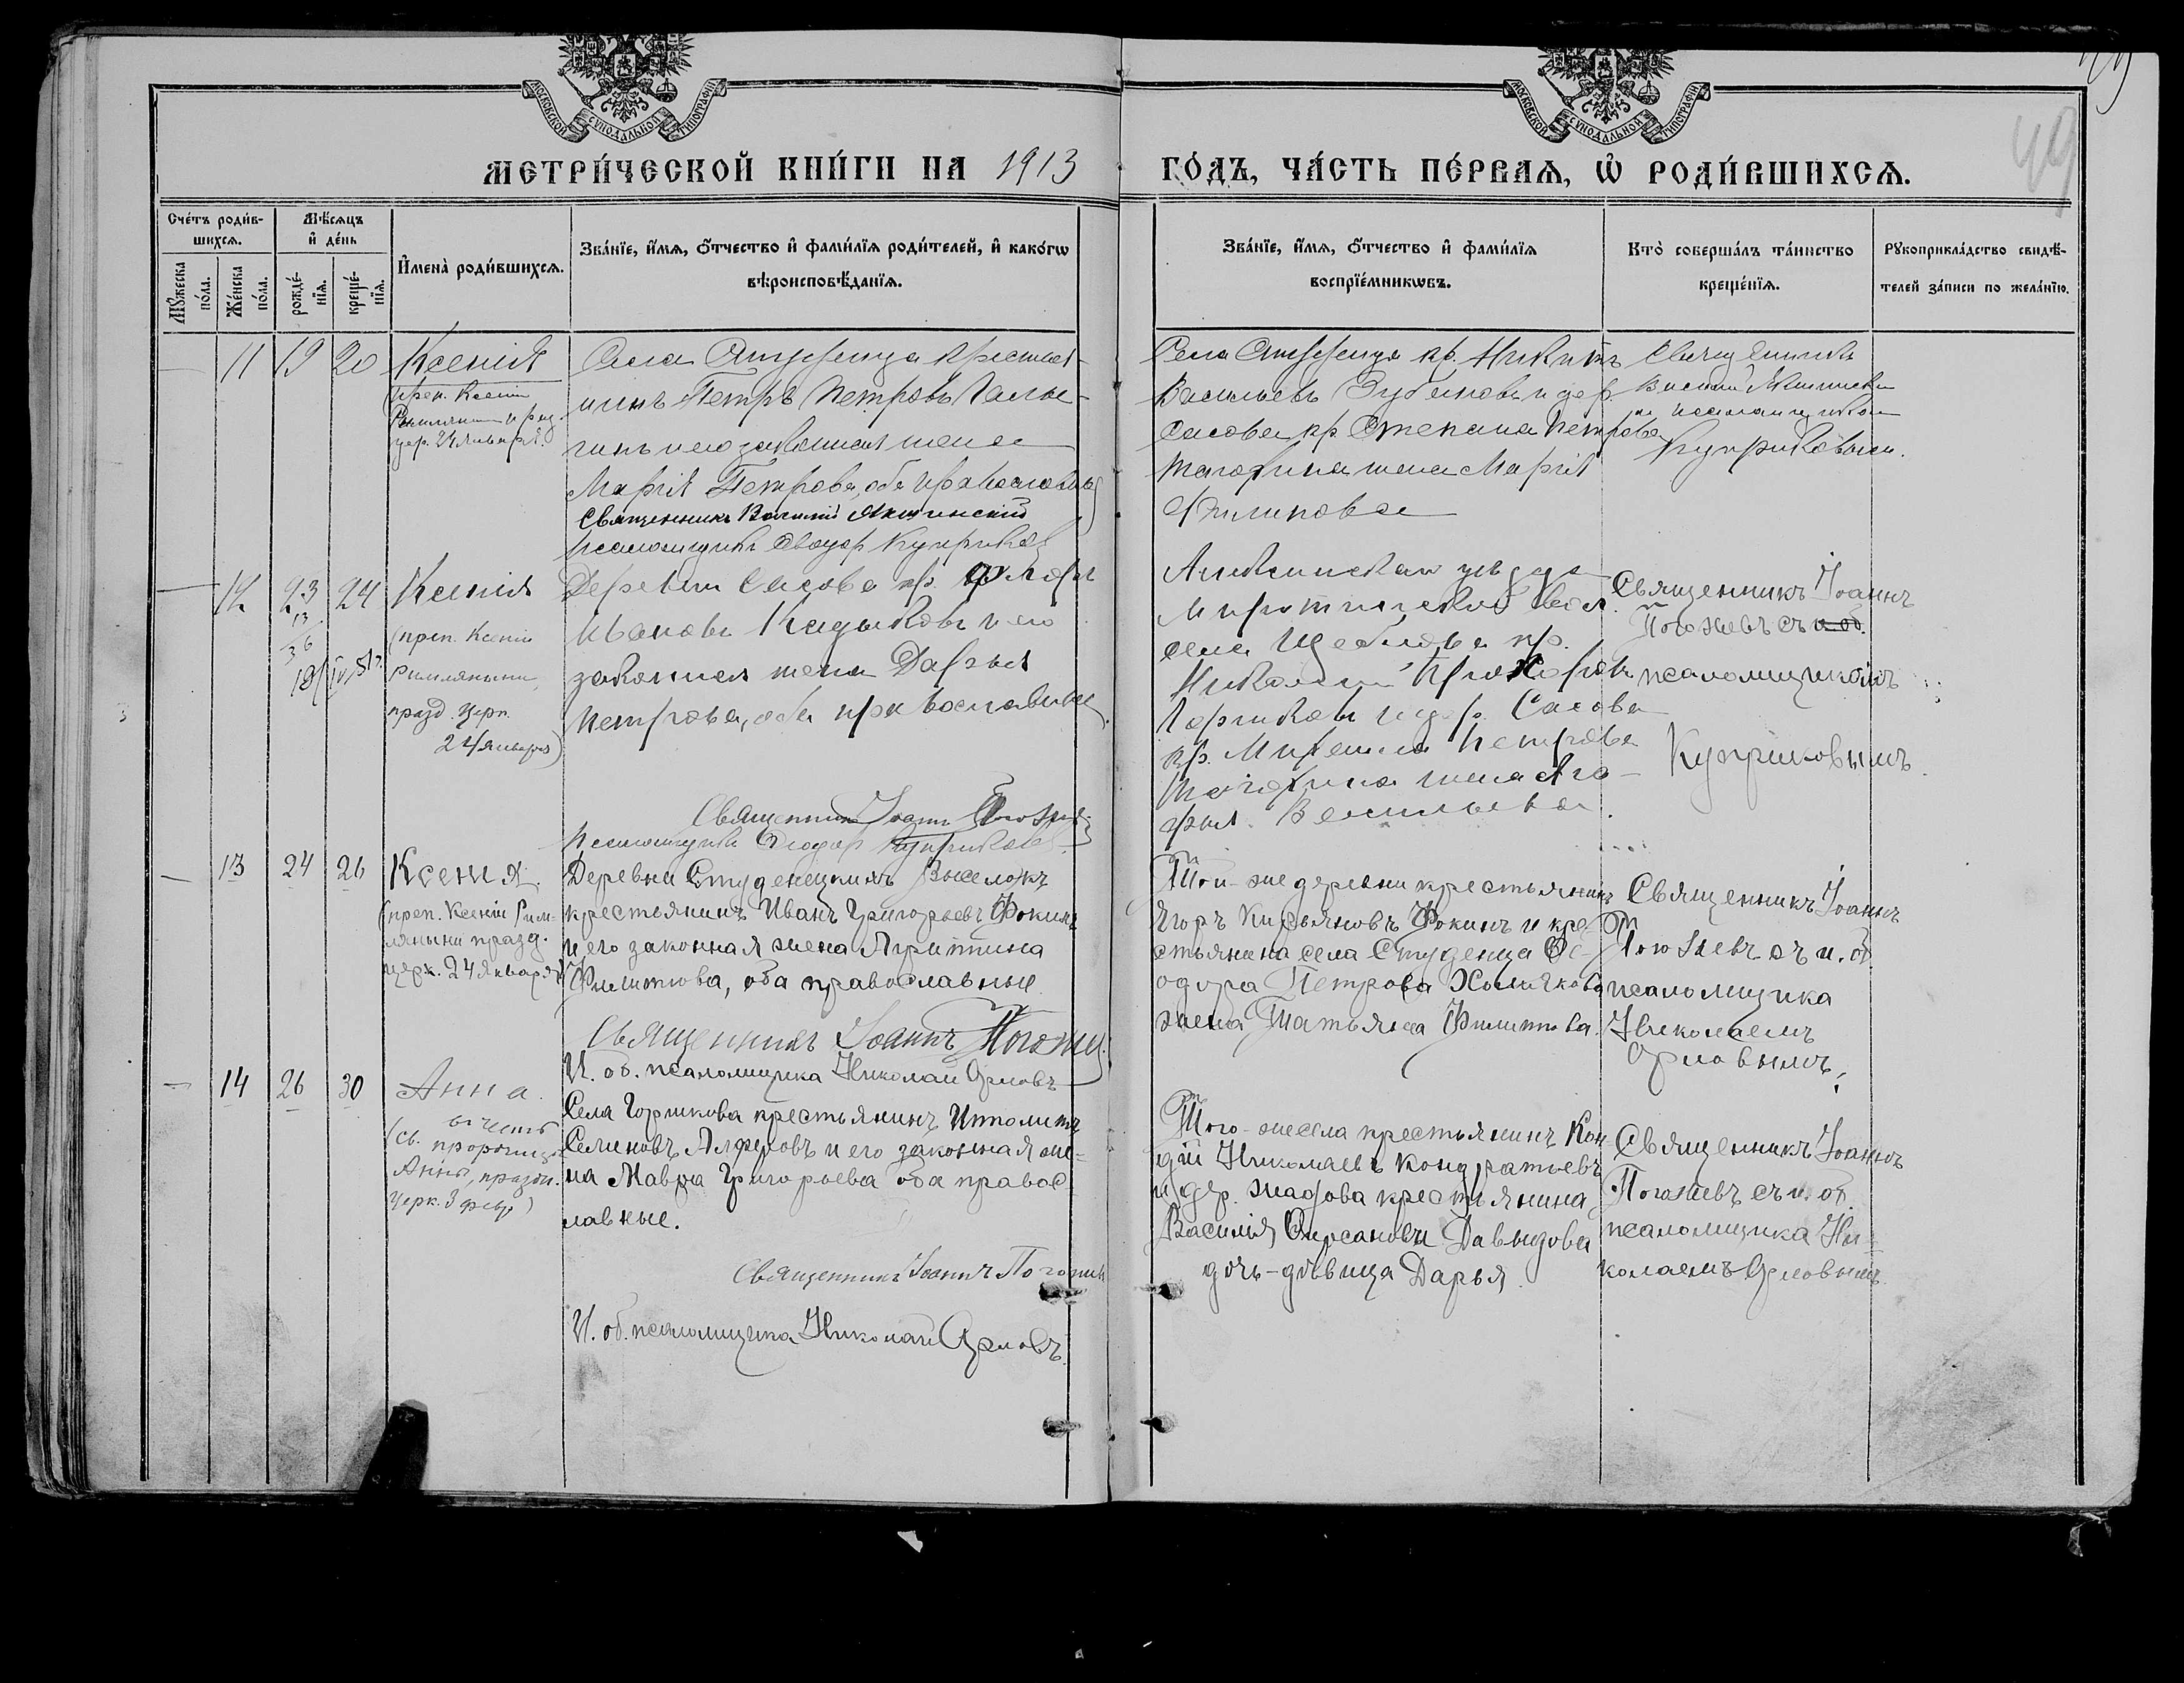 МОСКОВСКОЙ СѴНОДАЛЬНОЙ ТИПОГРАФІИ
МОСКОВСКОЙ СѴНОДАЛЬНОЙ ТИПОГРАФІИ
49
МЕТРИ́ЧЕСКОЙ КНИ́ГИ НА 1913
ГО́ДЪ, ЧА́СТЬ ПЕ́РВАѦ, Ѡ҆ РОДИ́ВШИХСѦ.
Сче́тъ роди́в-
шихсѧ.
Мѣ́сѧцъ
и҆ де́нь
Мꙋ́жеска
по́ла.
Же́нска
по́ла.
рожде́-
нїѧ.
креще́-
нїѧ.
И҆мена̀ роди́вшихсѧ.
Зва́нїе, и҆́мѧ, ѻ҆́тчество и҆ фами́лїѧ роди́телей, и҆ како́гѡ
вѣроисповѣ́данїѧ.
Зва́нїе, и҆́мѧ, ѻ҆́тчество и҆ фами́лїѧ
воспрїе́мникѡвъ.
Кто̀ соверша́лъ та́инство
креще́нїѧ.
Рꙋкоприкла́дство свидѣ́-
телей за́писи по жела́нїю.
11 19 20 Ксенія
преп. Ксеніи
Римляныни празд.
цер. 24 января.
Села Студенца крестья-
нинъ Петръ Петровъ
и его законная жена
Марія Петрова, оба православны
Священникъ Василій
Псаломщикъ Ѳеодоръ Куприков
Села Студенца кр. Никита
Васильевъ и дер.
Сасова кр. Степана Петрова
жена Марія
Филиппова
Священникъ
Василій
съ псаломщикомъ
Куприковымъ.
12 23 24 Ксенія
(преп. Ксеніи
Римляныни,
празд. церк.
24 января)
Деревни Сасова кр.
Ивановъ Кадыковъ и его
законная жена Дарья
Петрова, оба православные
Священникъ Іоаннъ
Псаломщикъ Ѳеодор Куприковъ
уѣзда
вол.
села Щеблова кр.
Николай Прохоровъ
и дер. Сасова
кр. Михаила Петрова
жена Ага-
фья Васильева.
Священникъ Іоаннъ
Погожевъ съ и. об.
псаломщикомъ
Куприковымъ.
13 24 26 Ксенія.
(преп. Ксеніи Рим-
ляныни празд.
церк. 24 января)
Деревни Студенецкихъ Выселокъ
крестьянинъ Иванъ Григорьевъ Фокинъ
и его законная жена
Филиппова, оба православные
Священникъ Іоаннъ Погожев
И. об. псаломщика Николай Орловъ
Той-же деревни крестьянинъ
Егоръ Касьяновъ Фокинъ и кре-
стьянина села Студенца Ѳе-
одора Петрова Хомякова
жена, Татьяна Филиппова.
Священникъ Іоаннъ
Погожевъ съ и. об.
псаломщика
Николаемъ
Орловымъ.
14 26 30 Анна.
(въ честь
св. пророчицы
Анны, праздн.
церк. 3 февр.)
Села Горшкова крестьянинъ Ипполитъ
Селиновъ Алферовъ и его законная же-
на Мавра Григорьева оба правос-
лавные.
Священникъ Іоаннъ Погожев
И. об. псаломщика Николай Орловъ.
Того-же села крестьянинъ
Николаевъ Кондратьевъ
и дер. крестьянина
Василія Давыдова
дочь-дѣвица Дарья.
Священникъ Іоаннъ
Погожевъ съ и. об.
псаломщика Ни-
колаемъ Орловымъ.